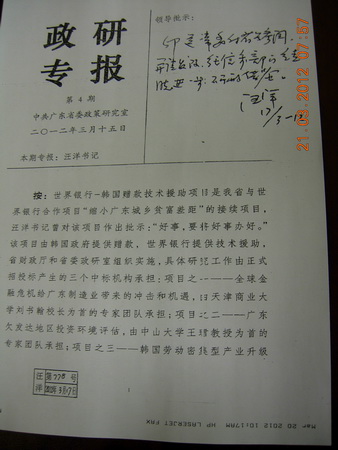 政研
专报
第 4 期
中共广东省委政策研究室
二〇一二年三月十五日
本期专报：汪洋书记
领导批示：
汪洋
21.03.2012 07:57
按：世界银行—韩国赠款技术援助项目是我省与世
界银行合作项目“缩小广东城乡贫富差距”的接续项目，
汪洋书记曾对该项目作出批示：“好事，要将好事办好。”
该项目由韩国政府提供赠款，世界银行提供技术援助，
省财政厅和省委政研室组织实施，具体研究工作由正式
招标投产生的三个中标机构承担：项目之一——全球金
融危机给广东制造业带来的冲击和机遇，由天津商业大
学刘书瀚校长为首的专家团队承担；项目之二——广东
欠发达地区投资环境评估，由中山大学王珺教授为首的
专家团队承担；项目之三——韩国劳动密集型产业升级
Mar 20 2012 10:17AM HP LASERJET FAX